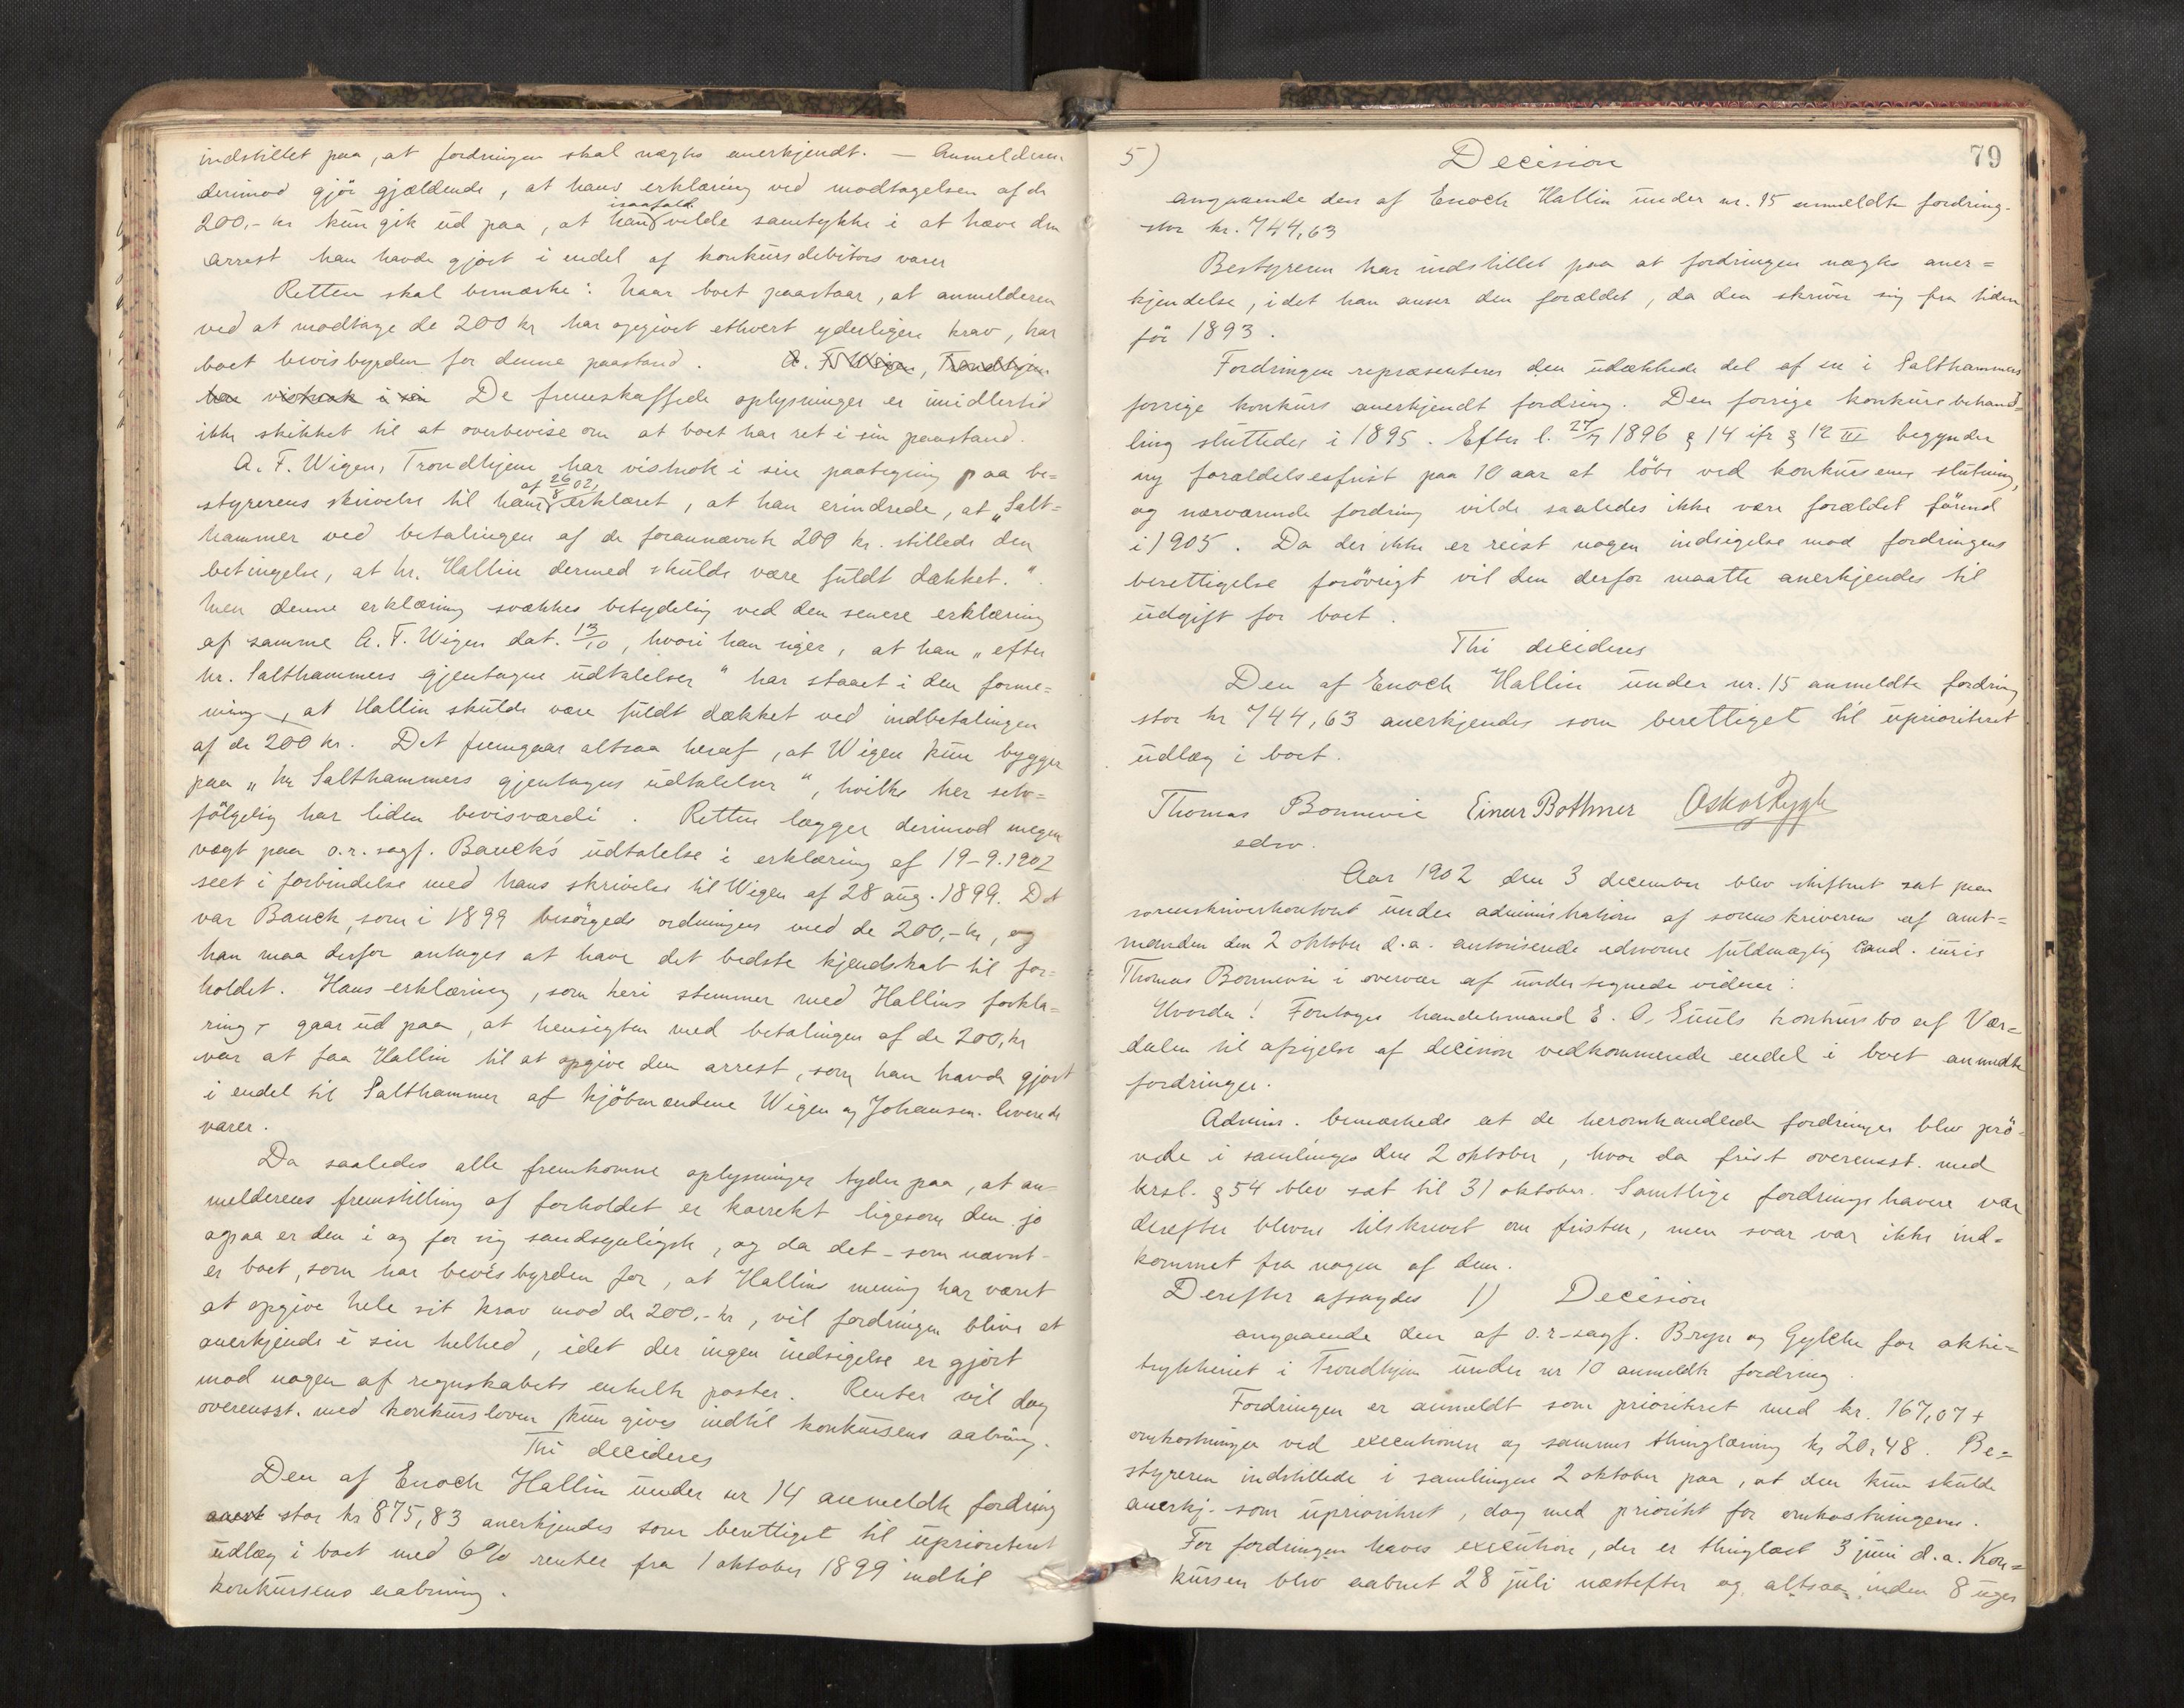 indstillet paa, at fordringen skal nægtes anerkjendt. — Anmelderen
derimod gjør gjældende, at hans erklæring ved modtagelsen af de
200,- kr kun gik ud paa, at han isaafald vilde samtykke i at hæve den
arrest han havde gjort i endel af konkursdebitors varer
Retten skal bemærke: Naar boet paastaar, at anmelderen
ved at modtage de 200 kr har opgivet ethvert yderligere krav, har
boet bevisbyrden for denne paastand. A. F. Wigen, Trondhjem
har vistnok i sin De fremskaffede oplysninger er imidlertid
ikke skikket til at overbevise om at boet har ret i sin paastand.
A. F. Wigen, Trondhjem har vistnok i sin paategning paa be=
styrerens skrivelse til ham af 26/8 02, erklæret, at han erindrede, at „Salt=
hammer ved betalingen af de forannævnte 200 kr. stillede den
betingelse, at hr. Hallin dermed skulde være fuldt dækket.“
Men denne erklæring svækkes betydelig ved den senere erklæring
af samme A. F. Wigen dat. 13/10, hvori han siger, at han „efter
hr. Salthammers gjentagne udtalelser“ har staaet i den forme=
ning, at Hallin skulde være fuldt dækket ved indbetalingen
af de 200 kr. Det fremgaar altsaa heraf, at Wigen kun bygger
paa „hr Salthammers gjentagne udtalelser“, hvilke her selv=
følgelig har liden bevisværdi. Retten lægger derimod megen
vægt paa o.r.sagf. Bauck's udtalelse i erklæring af 19-9.1902
seet i forbindelse med hans skrivelse til Wigen af 28 aug. 1899. Det
var Bauck, som i 1899 besørgede ordningen med de 200,- kr, og
han maa derfor antages at have det bedste kjendskab til for=
holdet. Hans erklæring, som heri stemmer med Hallins forkla=
ring, gaar ud paa, at hensigten med betalingen af de 200, kr
var at faa Hallin til at opgive den arrest, som han havde gjort
i endel til Salthammer af kjøbmændene Wigen og Johansen leverede
varer.
Da saaledes alle fremkomne oplysninger tyder paa, at an=
melderens fremstilling af forholdet er korrekt ligesom den jo
ogsaa er den i og for sig sandsynligste, og da det – som nævnt –
er boet, som har bevisbyrden for, at Hallins mening har været
at opgive hele sit krav mod de 200.- kr, vil fordringen blive at
anerkjende i sin helhed, idet der ingen indsigelse er gjort
mod nogen af regnskabets enkelte poster. Renter vil dog
overensst. med konkursloven kun gives indtil konkursens aabning.
Thi decideres
Den af Enoch Hallin under nr 14 anmeldte fordring
stor kr 875,83 anerkjendes som berettiget til uprioriteret
udlæg i boet med 6% renter fra 1 oktober 1899 indtil
konkursens aabning.
79
5) Decision
angaaende den af Enoch Hallin under nr. 15 anmeldte fordring
stor kr. 744,63
Bestyreren har indstillet paa at fordringen nægtes aner=
kjendelse, idet han anser den forældet, da den skriver sig fra tiden
før 1893.
Fordringen repræsenterer den udækkede del af en i Salthammers
forrige konkurs anerkjendt fordring. Den forrige konkursbehand=
ling sluttedes i 1895. Efter l. 27/7 1896 § 14 ifr § 12 III begynder
ny forældelsesfrist paa 10 aar at løbe ved konkursens slutning,
og nærværende fordring vilde saaledes ikke være forældet førend
i 1905. Da der ikke er reist nogen indsigelse mod fordringens
berettigelse forøvrigt vil den derfor maatte anerkjendes til
udgift for boet.
Thi decideres
Den af Enoch Hallin under nr. 15 anmeldte fordring
stor kr 744,63 anerkjendes som berettiget til uprioriteret
udlæg i boet.
Thomas Bonnevie Einar Bothner Oskar Rygh
edsv.
Aar 1902 den 3 december blev skifteret sat paa
sorenskriverkontoret under administration af sorenskriverens af amt=
manden den 2 oktober d.a. autoriserede edsvorne fuldmægtig cand. iuris
Thomas Bonnevie i overvær af undertegnede vidner:
Hvorda! Foretoges handelsmand E. O. Suuls konkursbo af Vær=
dalen til afsigelse af decision vedkommende endel i boet anmeldte
fordringer.
Admin. bemærkede at de heromhandlede fordringer blev prø=
vede i samlingen den 2 oktober, hvor da frist overensst. med
krsl. § 54 blev sat til 31 oktober. Samtlige fordringshavere var
derefter blevne tilskrevet om fristen, men svar var ikke ind=
kommet fra nogen af dem.
Derefter afsagdes 1) Decision
angaaende den af o.r-sagf. Bryn og Gylche for aktie=
trykkeriet i Trondhjem under nr 10 anmeldte fordring.
Fordringen er anmeldt som prioriteret med kr. 167,07 +
omkostninger ved executionen og sammes thinglæsning kr 20,48. Be=
styreren indstillede i samlingen 2 oktober paa, at den kun skulde
anerkj. som uprioriteret, dog med prioritet for omkostningerne.
For fordringen haves execution, der er thinglæst 3 juni d.a. Kon=
kursen blev aabnet 28 juli næstefter og altsaa inden 8 uger